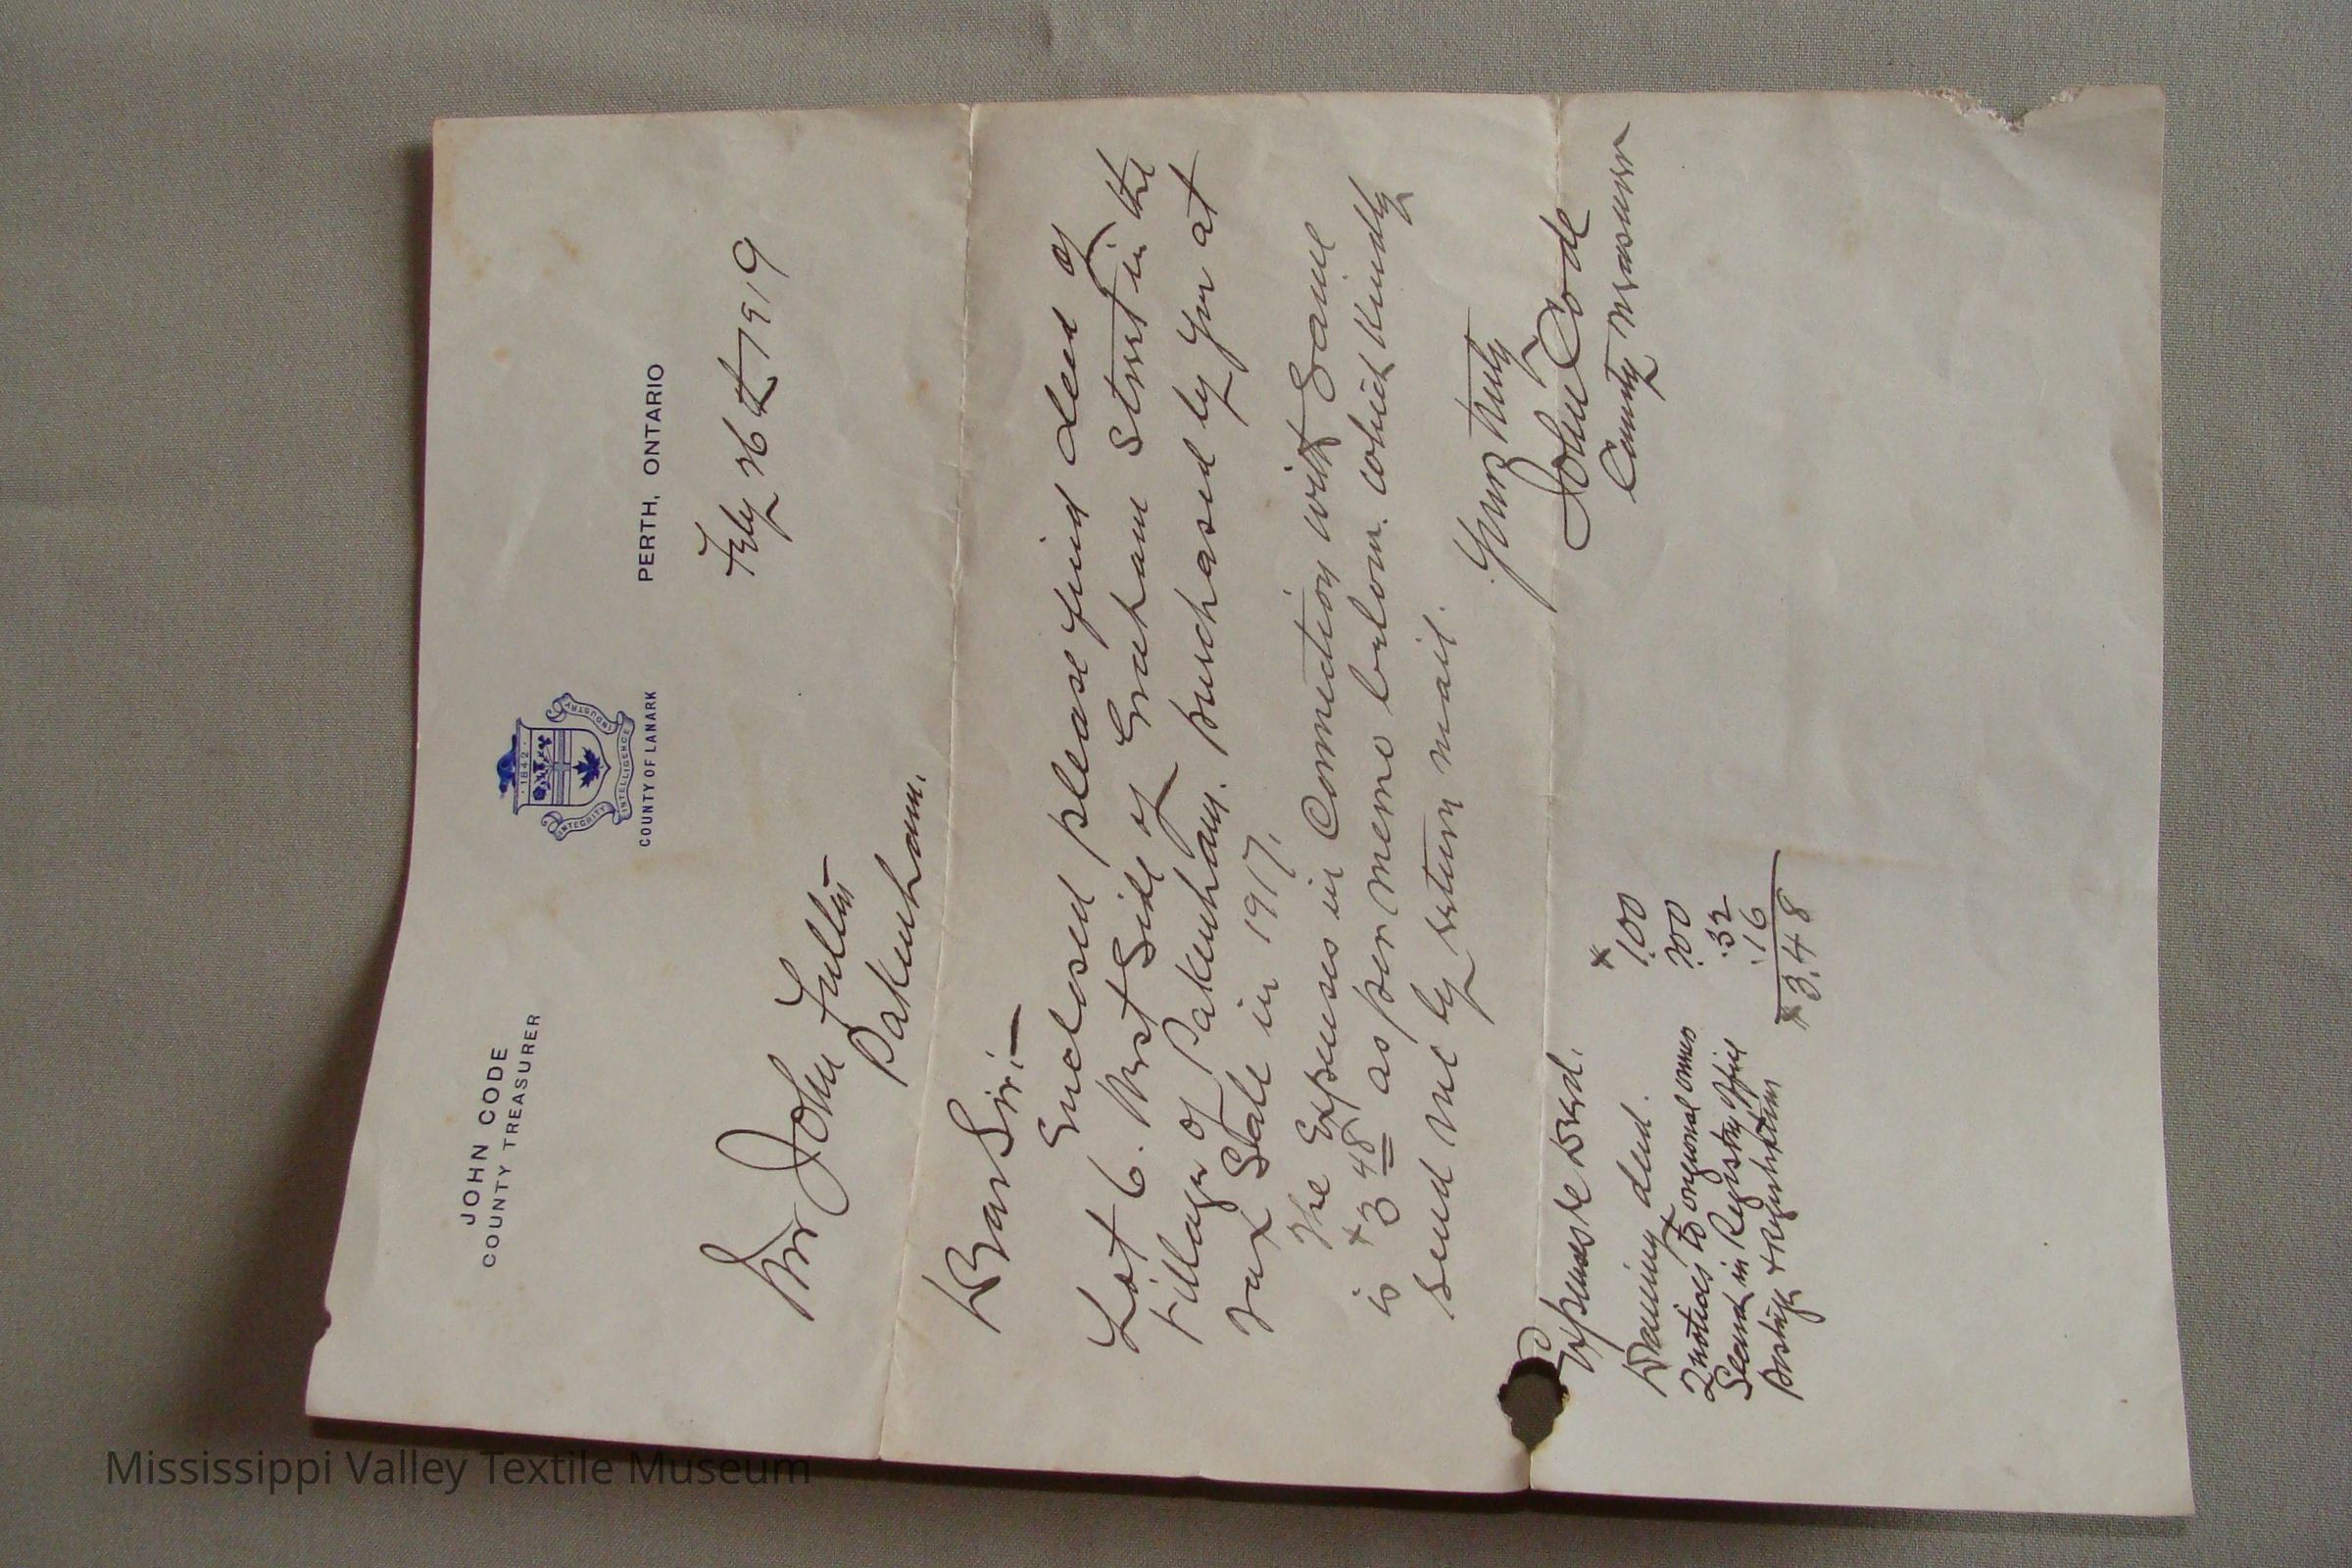 JOHN CODE
COUNTY TREASURER
1842
INTEGRITY INTELLIGENCE INDUSTRY
COUNTY OF LANARK
PERTH, ONTARIO
Feby 26th 1919
Mr John Fuller
Pakenham.
Dear Sir:—
Enclosed please find deed of
Lot 6. West Side of Graham Street in the
Village of Pakenham. purchased by you at
Tax Sale in 1917.
The Expenses in Connection with Same
is $3.48 as per memo below. which kindly
send me by return mail.
Yours truly
John Code
County Treasurer
Expenses re Deed.
Drawing deed. $1.00
2 notices to origional owners 2.00
Search in Registry Office .32
Postage & Registration .16
$3.48
Mississippi Valley Textile Museum